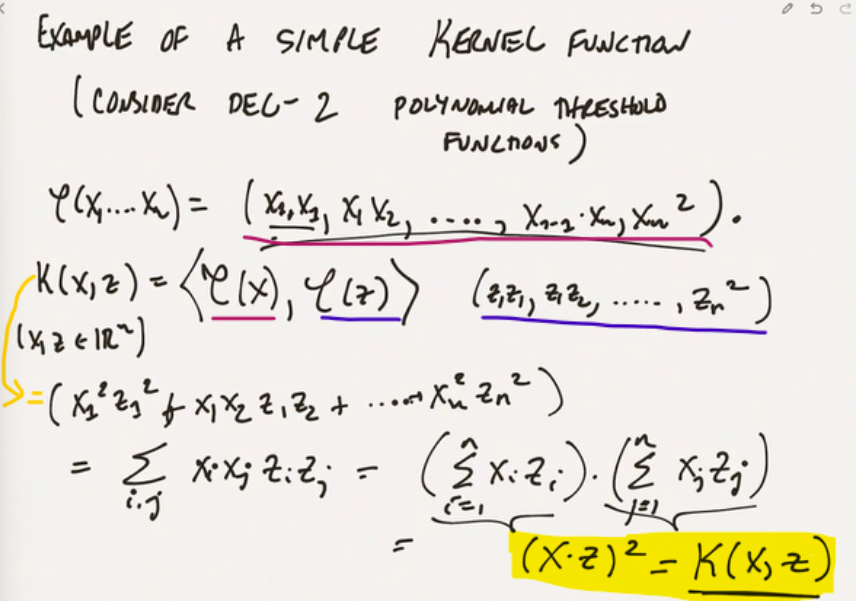 EXAMPLE OF A SIMPLE KERNEL FUNCTION
(CONSIDER DEG-2 POLYNOMIAL THRESHOLD
FUNCTIONS)
φ(x₁....xₙ) = (x₁,x₁, x₁x₂, ....., xₙ₋₁·xₙ, xₙ²).
K(x,z) = ⟨φ(x), φ(z)⟩ (z₁z₁, z₁z₂, ....., zₙ²)
(x,z ∈ ℝⁿ)
= (x₁²z₁² + x₁x₂z₁z₂ + ..... xₙ²zₙ²)
= Σ_{i,j} xᵢxⱼzᵢzⱼ = (Σ_{i=1}^{n} xᵢzᵢ)·(Σ_{j=1}^{n} xⱼzⱼ)
= (x·z)² = K(x,z)